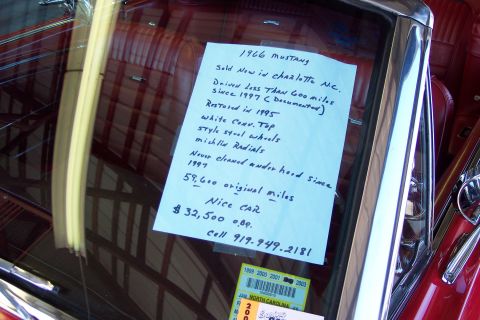 1966 MUSTANG
Sold New in Charlotte N.C.
Driven Less Than 600 miles
since 1997 (Documented)
Restored in 1995
white Conv. Top
style steel wheels
michlin Radials
Never cleaned under hood since
1997
59,600 original miles
Nice CAR
$32,500 o.b.o.
Cell 919-949-2181
1999 2000 2001 2003
NORTH CAROLINA